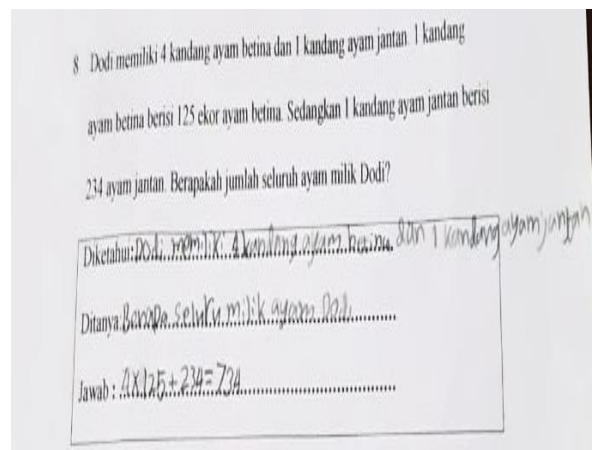 8 Dodi memiliki 4 kandang ayam betina dan 1 kandang ayam jantan. 1 kandang
ayam betina berisi 125 ekor ayam betina. Sedangkan 1 kandang ayam jantan berisi
234 ayam jantan. Berapakah jumlah seluruh ayam milik Dodi?
Diketahui: Dodi memiliki 4 kandang ayam betina dan 1 kandang ayam jantan
Ditanya: Berapa seluru milik ayam Dodi
Jawab : 4x125+234=734